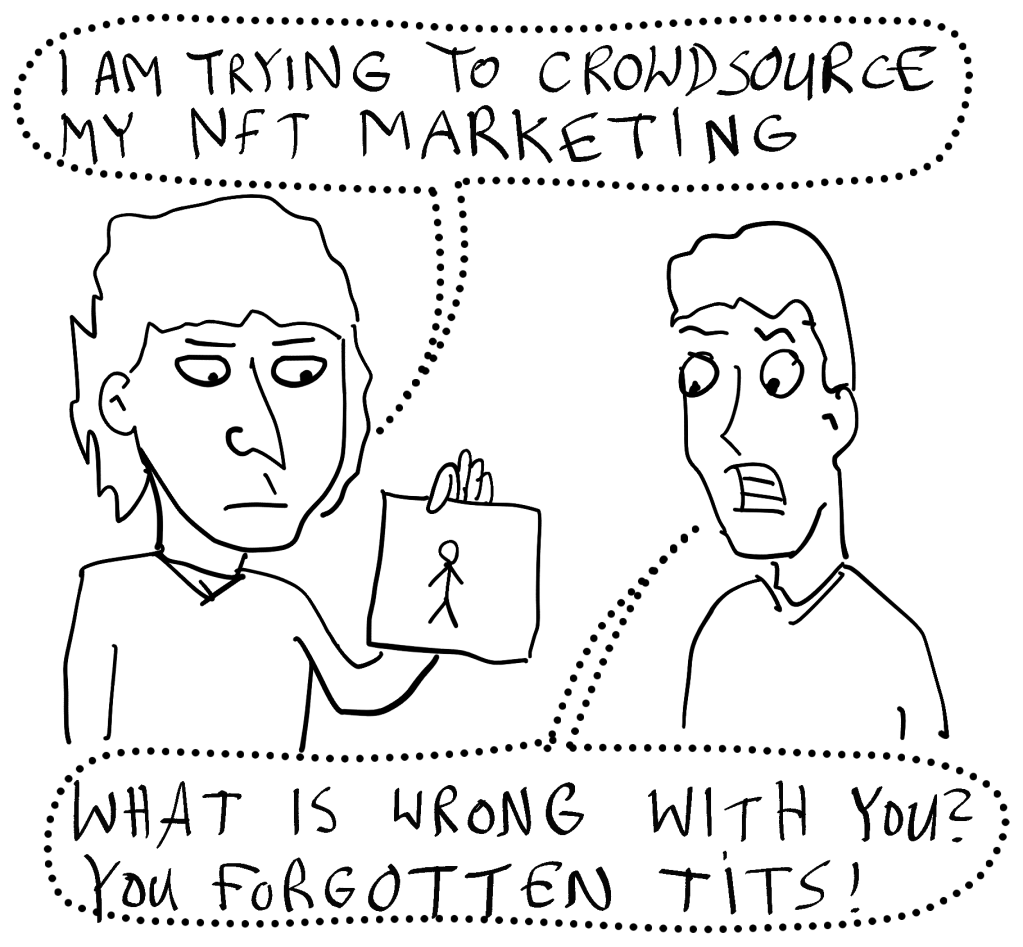 I AM TRYING TO CROWDSOURCE
MY NFT MARKETING
WHAT IS WRONG WITH YOU?
YOU FORGOTTEN TITS!